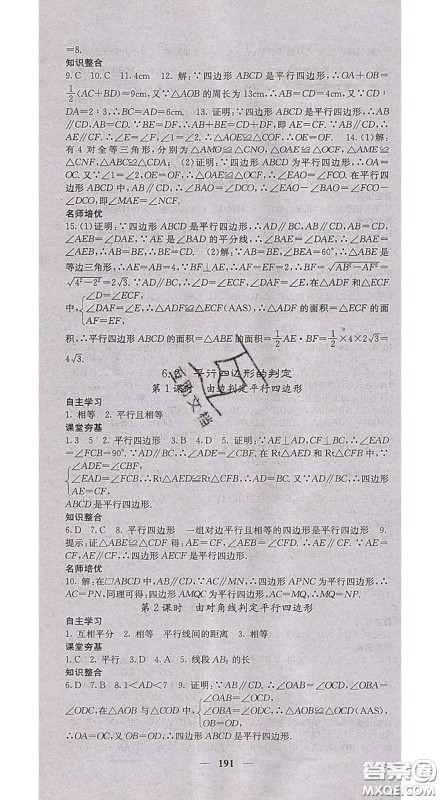 =8.
知识整合
9. C 10. C 11. 4cm 12. 解:∵四边形 ABCD 是平行四边形,∴OA+OB=
1/2(AC+BD)=9cm,又∵△AOB 的周长为 13cm,∴AB=CD=4cm,又∵CD:
DA=2:3,∴BC=AD=6cm. 13. 证明:∵四边形 ABCD 是平行四边形,∴AB∥
CD,AB=CD. ∵BE=DF,∴AB+BE=CD+DF,即 AE=CF. ∵AB∥CD,∴
AE∥CF. ∴∠E=∠F. 又∵∠1=∠2,∴△AOE≌△COF,∴OE=OF. 14. (1)解:
有 4 对全等三角形,分别为△AMO≌△CNO,△OAE≌△OCF,△AME≌
△CNF,△ABC≌△CDA;(2)证明:∵四边形 ABCD 为平行四边形,∴OA=
OC. 又∵∠1=∠2,OE=OF,∴△OAE≌△OCF,∴∠EAO=∠FCO. 在平行四
边形 ABCD 中,AB∥CD,∴∠BAO=∠DCO,∴∠EAO-∠BAO=∠FCO-
∠DCO,即∠MAE=∠NCF.
名师培优
15. (1)证明:∵四边形 ABCD 是平行四边形,∴AD∥BC,AB∥CD,AB=CD,
∠AEB=∠DAE,又∵AE 是∠BAD 的平分线,∴∠BAE=∠DAE,∴∠BAE=
∠AEB,∴AB=BE,∴BE=CD. (2)解:∵AB=BE,∠BEA=60°,∴△ABE 是
等边三角形,∴AE=AB=4,∵BF⊥AE,∴AF=EF=2,∴BF=√(AB²-AF²)=
√(4²-2²)=2√3. ∵AD∥BC,∴∠D=∠ECF,∠DAF=∠E,在△ADF 和△ECF 中,
{∠D=∠ECF,
∠DAF=∠E,∴△ADF≌△ECF(AAS),∴△ADF 的面积=△ECF 的面
AF=EF,
积,∴平行四边形 ABCD 的面积=△ABE 的面积=1/2 AE·BF=1/2×4×2√3=
4√3.
平行四边形的判定
第 1 课时 由边判定平行四边形
自主学习
1. 相等 2. 平行且相等
课堂夯基
1. 3 5 2. 平行四边形 3. B 4. D 5. 证明:∵AE⊥AD,CF⊥BC,∴∠EAD=
∠FCB=90°. ∵AD∥BC,∴∠ADE=∠CBF. 在 Rt△AED 和 Rt△CFB 中,∵
{∠ADE=∠CBF,
∠EAD=∠FCB,∴Rt△AED≌Rt△CFB(AAS),∴AD=BC,∵AD∥BC,∴
AE=CF,
四边形 ABCD 是平行四边形.
知识整合
6. D 7. C 8. 平行四边形 一组对边平行且相等的四边形是平行四边形 9.
提示:证△ABE≌△CDF 得 AE=CF. ∵AE∥CF,∴四边形 AECF 是平行四边形.
名师培优
10. 解:在▱ABCD 中,AB∥CD,AD∥BC,∵AC∥MN,∴四边形 APNC 为平行四边形,∴
AC=PN,同理可得:四边形 AMQC 为平行四边形,AC=MQ,∴MQ=NP.
第 2 课时 由对角线判定平行四边形
自主学习
1. 互相平分 2. 相等 平行线间的距离 3. 相等
课堂夯基
1. C 2. 平行 3. A 4. D 5. 线段 AB₂ 的长
知识整合
6. D 7. B 8. 1<AD<7 9. 证明:∵AB∥CD,∴∠OAB=∠OCD,∠OBA=
∠ODC,在△AOB 与△COD 中,{∠OAB=∠OCD,
∠OBA=∠ODC,∴△AOB≌△COD(AAS),
OB=OD,
∴OA=OC,又 OB=OD,∴四边形 ABCD 是平行四边形.
191
互助文档
答案圈
MXQE.COM